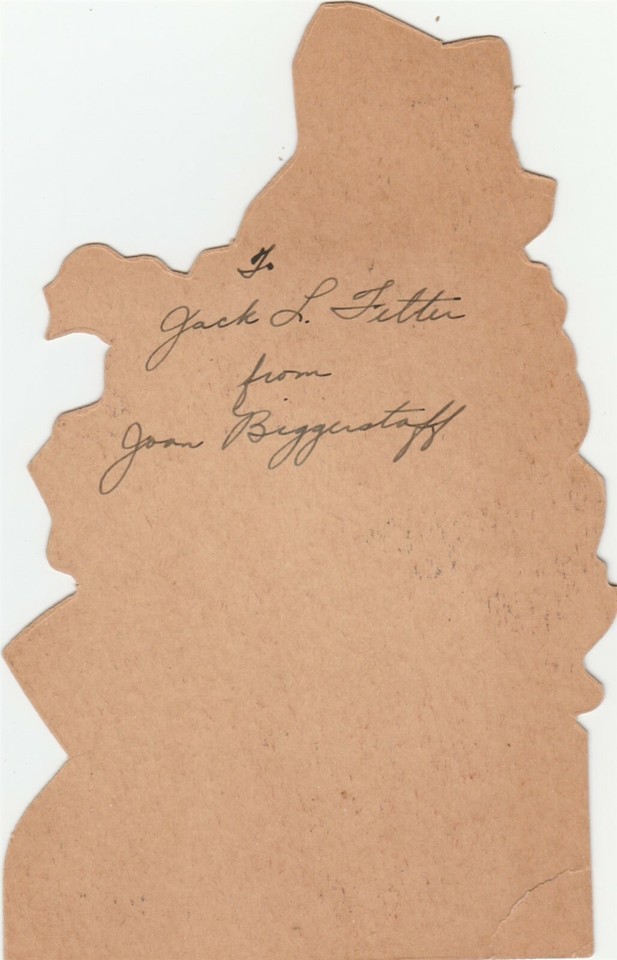 To
Jack L. Fetter
from
Joan Biggerstaff